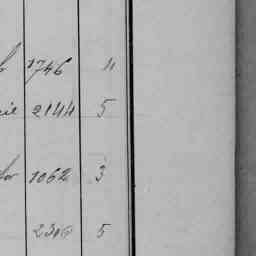 1746 4
2144 5
1062 3
2316 5